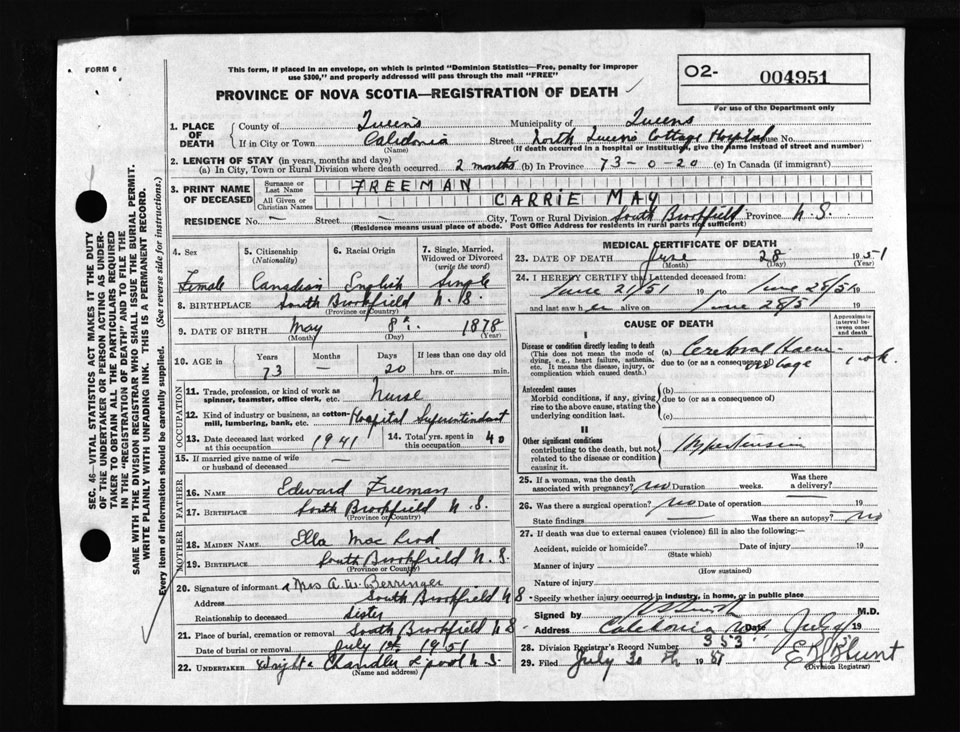 FORM 6
This form, if placed in an envelope, on which is printed "Dominion Statistics—Free, penalty for improper
use $300," and properly addressed will pass through the mail "FREE"
PROVINCE OF NOVA SCOTIA—REGISTRATION OF DEATH
02- 004951
For use of the Department only
1. PLACE OF DEATH
County of Queens Municipality of Queens
If in City or Town Caledonia Street North Queens Cottage Hospital House No.
(Name) (If death occurred in a hospital or institution, give the name instead of street and number)
2. LENGTH OF STAY (in years, months and days)
(a) In City, Town or Rural Division where death occurred 2 months (b) In Province 73-0-20 (c) In Canada (if immigrant)
3. PRINT NAME OF DECEASED
Surname or Last Name FREEMAN
All Given or Christian Names CARRIE MAY
RESIDENCE No. — Street — City, Town or Rural Division South Brookfield Province N.S.
(Residence means usual place of abode. Post Office Address for residents in rural parts not sufficient)
4. Sex Female
5. Citizenship (Nationality) Canadian
6. Racial Origin English
7. Single, Married, Widowed or Divorced (write the word) Single
8. BIRTHPLACE South Brookfield N.S.
(Province or Country)
9. DATE OF BIRTH May 8 1878
(Month) (Day) (Year)
10. AGE in Years 73 Months — Days 20 If less than one day old hrs. or min.
OCCUPATION
11. Trade, profession, or kind of work as spinner, teamster, office clerk, etc. Nurse
12. Kind of industry or business, as cotton-mill, lumbering, bank, etc. Hospital Superintendant
13. Date deceased last worked at this occupation 1941
14. Total yrs. spent in this occupation 40
15. If married give name of wife or husband of deceased —
FATHER
16. NAME Edward Freeman
17. BIRTHPLACE South Brookfield N.S.
(Province or Country)
MOTHER
18. MAIDEN NAME Ella Mac Leod
19. BIRTHPLACE South Brookfield N.S.
(Province or Country)
20. Signature of informant Mrs A.W. Berringer
Address South Brookfield NS
Relationship to deceased Sister
21. Place of burial, cremation or removal South Brookfield NS
Date of burial or removal July 1st 1951
22. UNDERTAKER Wright & Chandler L'pool N.S.
(Name and address)
MEDICAL CERTIFICATE OF DEATH
23. DATE OF DEATH June 28 1951
(Month) (Day) (Year)
24. I HEREBY CERTIFY that I attended deceased from
June 21/51 19 to June 28/51 19
and last saw her on June 28/51 19
CAUSE OF DEATH
Approximate interval between onset and death
I
Disease or condition directly leading to death
(This does not mean the mode of dying, e.g., heart failure, asthenia, etc. It means the disease, injury, or complication which caused death.)
(a) Cerebral Haemorrhage 1 wk.
due to (or as a consequence of)
Antecedent causes
Morbid conditions, if any, giving rise to the above cause, stating the underlying condition last.
(b)
due to (or as a consequence of)
(c)
II
Other significant conditions
contributing to the death, but not related to the disease or condition causing it.
Hypertension
25. If a woman, was the death associated with pregnancy? no Duration weeks. Was there a delivery?
26. Was there a surgical operation? no Date of operation 19
State findings Was there an autopsy? no
27. If death was due to external causes (violence) fill in also the following:—
Accident, suicide or homicide? Date of injury 19
(State which)
Manner of injury
(How sustained)
Nature of injury
Specify whether injury occurred in industry, in home, or in public place
Signed by M.D.
Address Caledonia Date July 19
28. Division Registrar's Record Number 353
29. Filed July 30th 1951
(Division Registrar)
SEC. 46—VITAL STATISTICS ACT MAKES IT THE DUTY
OF THE UNDERTAKER OR PERSON ACTING AS UNDER-
TAKER TO OBTAIN ALL THE PARTICULARS REQUIRED
IN THE "REGISTRATION OF DEATH" AND TO FILE THE
SAME WITH THE DIVISION REGISTRAR WHO SHALL ISSUE THE BURIAL PERMIT.
WRITE PLAINLY WITH UNFADING INK. THIS IS A PERMANENT RECORD.
Every item of information should be carefully supplied. (See reverse side for instructions.)